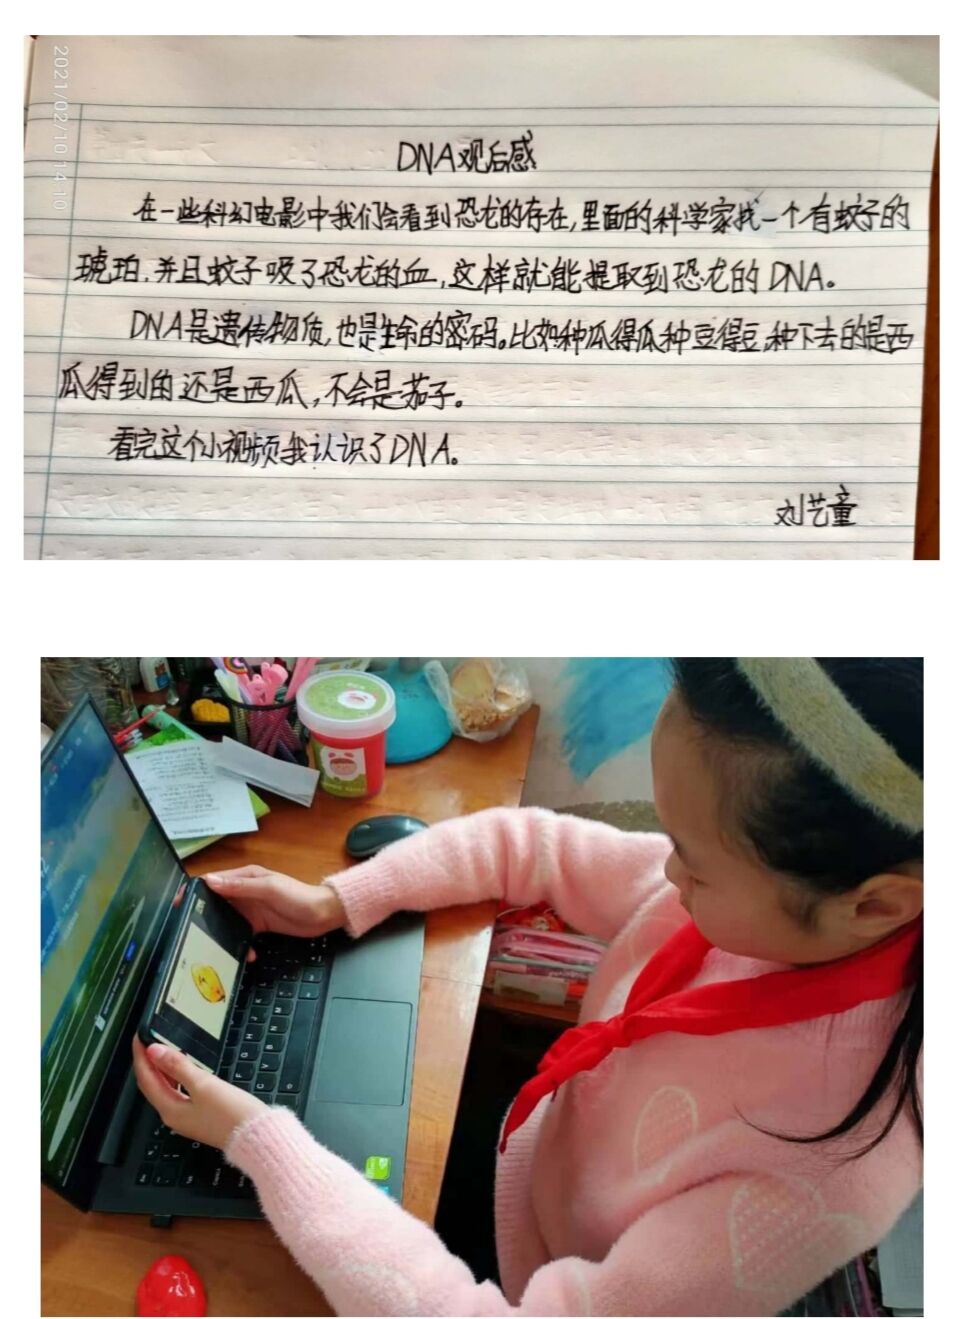 2021/02/10 14:10
DNA观后感
在一些科幻电影中我们会看到恐龙的存在,里面的科学家找一个有蚊子的
琥珀.并且蚊子吸了恐龙的血,这样就能提取到恐龙的DNA。
DNA是遗传物质,也是生命的密码。比如种瓜得瓜种豆得豆,种下去的是西
瓜得到的还是西瓜,不会是茄子。
看完这个小视频我认识了DNA。
刘艺童